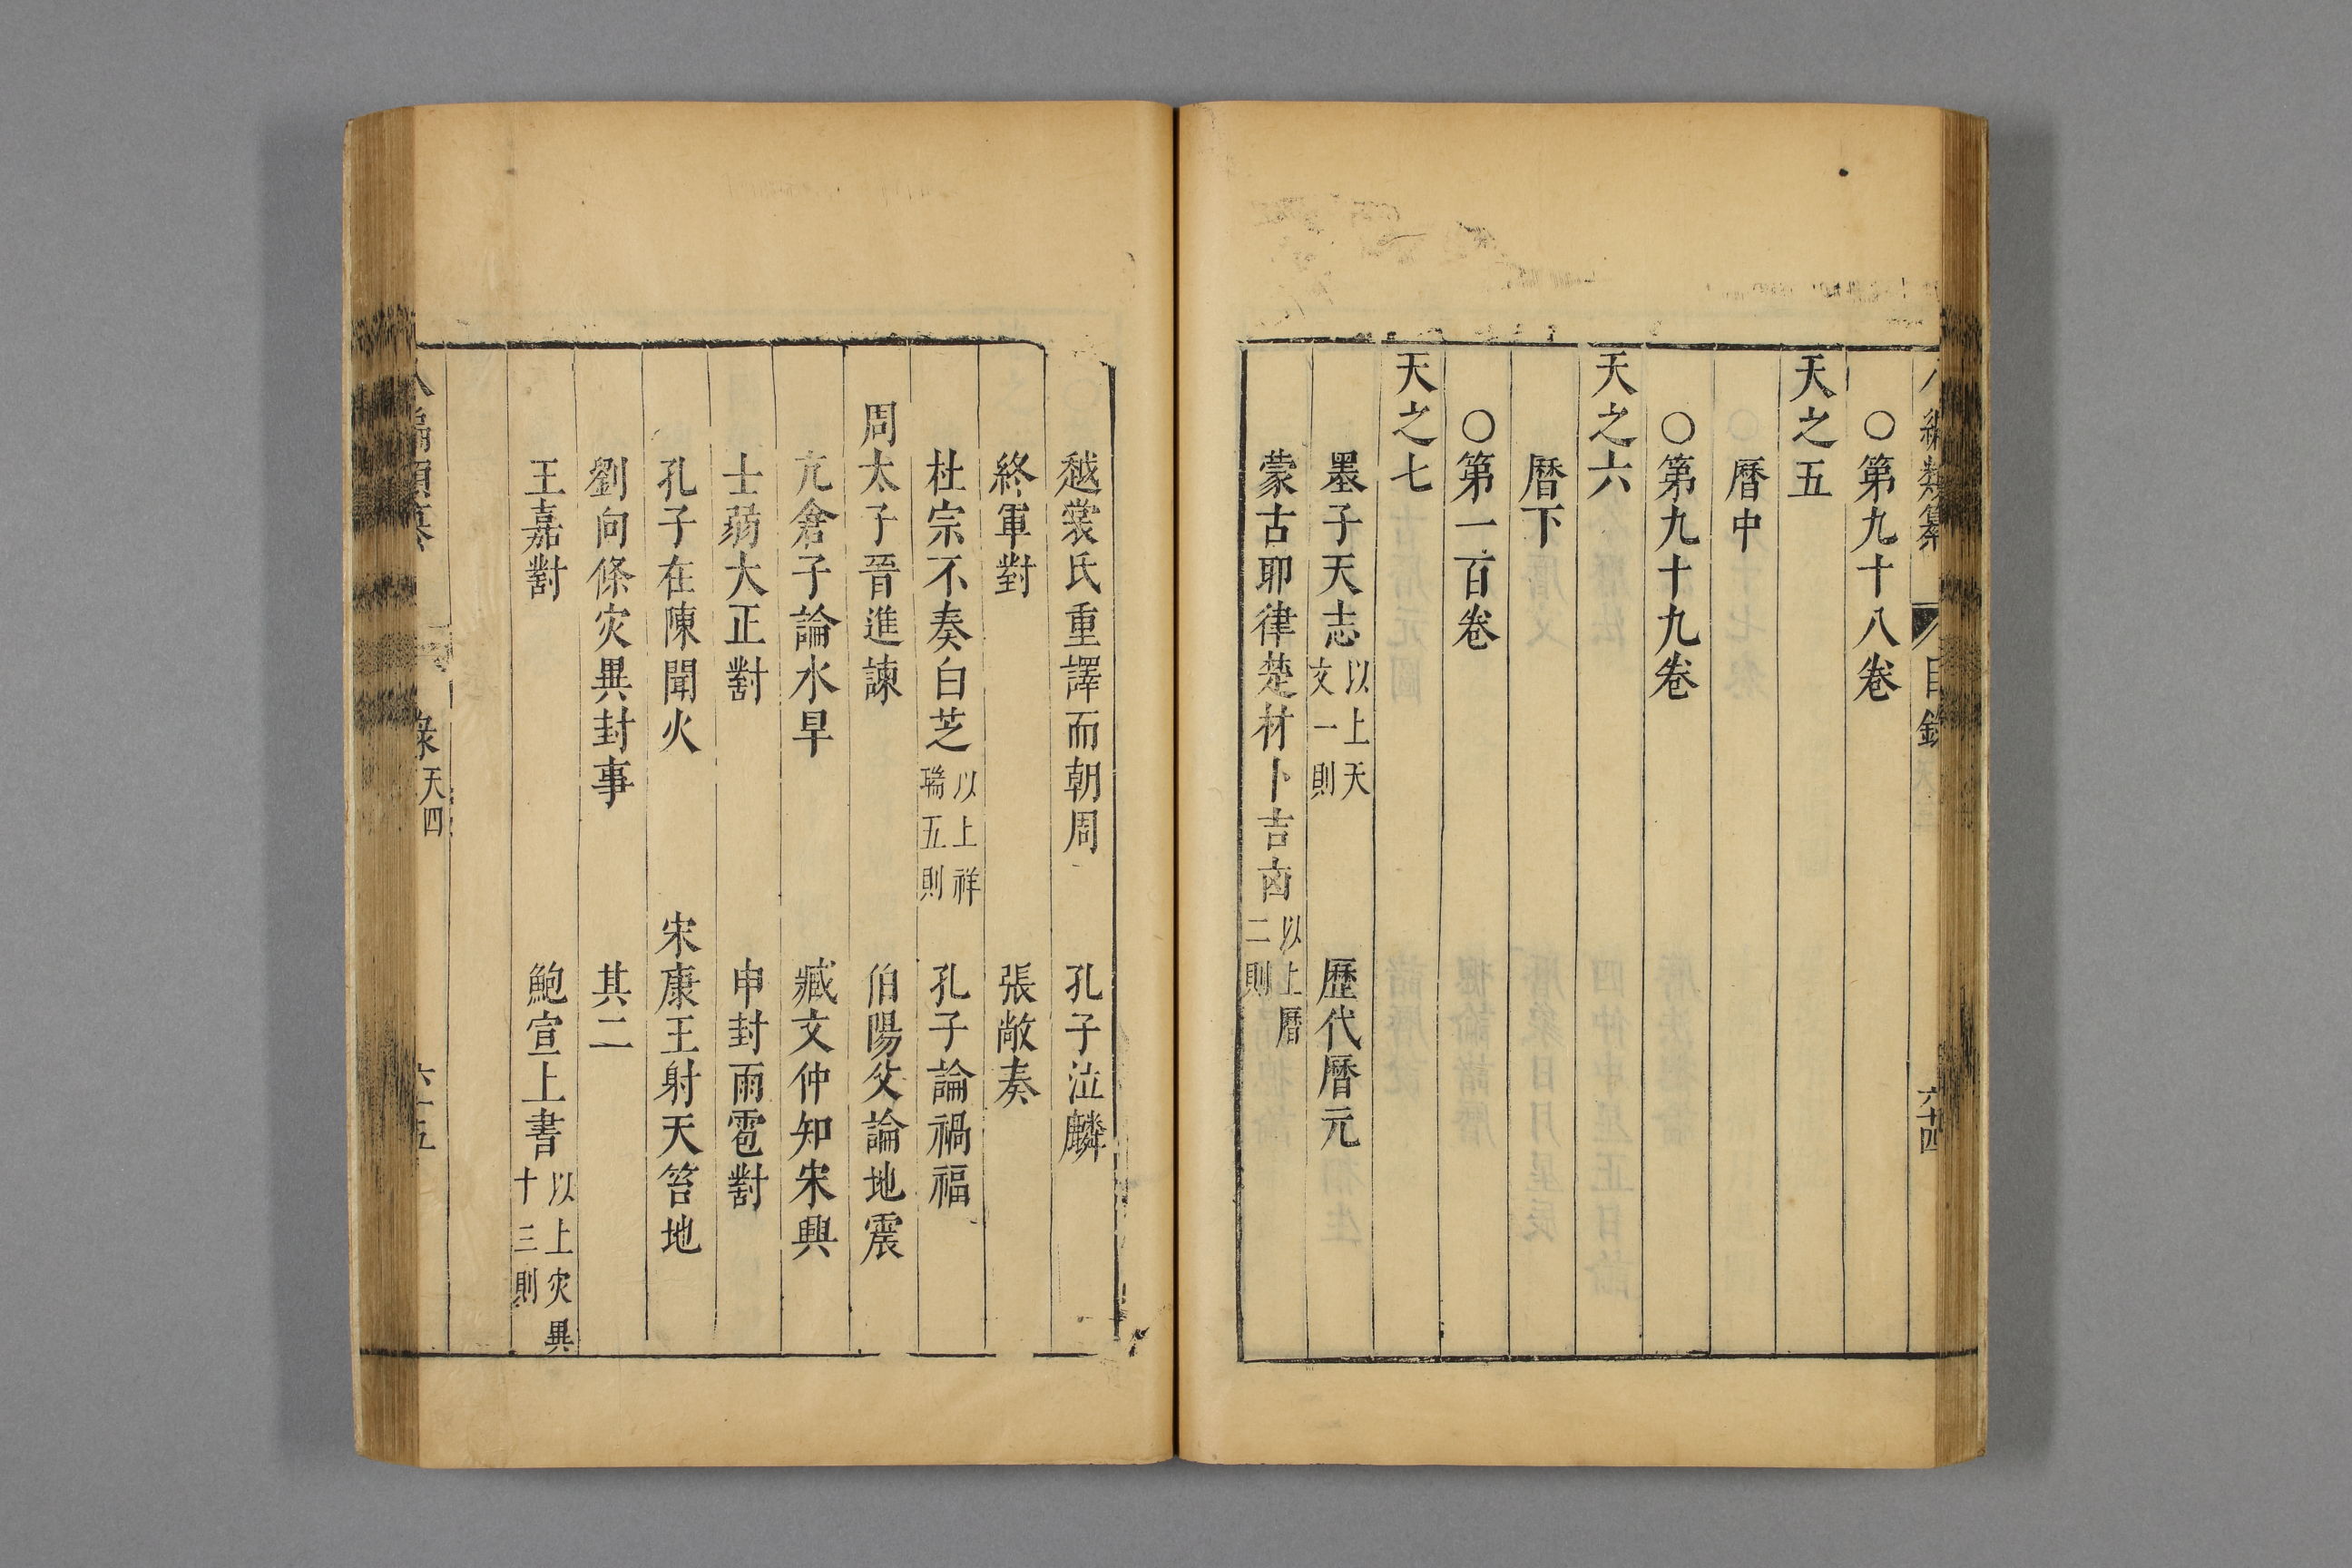 八編類纂 目錄 六十四
○第九十八卷
天之五
曆中
○第九十九卷
天之六
曆下
○第一百卷
天之七
墨子天志 以上天文一則 歷代曆元
蒙古耶律楚材卜吉凶 以上曆二則
越裳氏重譯而朝周 孔子泣麟
終軍對 張敞奏
杜宗不奏白芝 以上祥瑞五則 孔子論禍福
周太子晉進諫 伯陽父論地震
亢倉子論水旱 臧文仲知宋興
士弱大正對 申封雨雹對
孔子在陳聞火 宋康王射天笞地
劉向條灾異封事 其二
王嘉對 鮑宣上書 以上灾異十三則
八編類纂 錄 天四 六十五